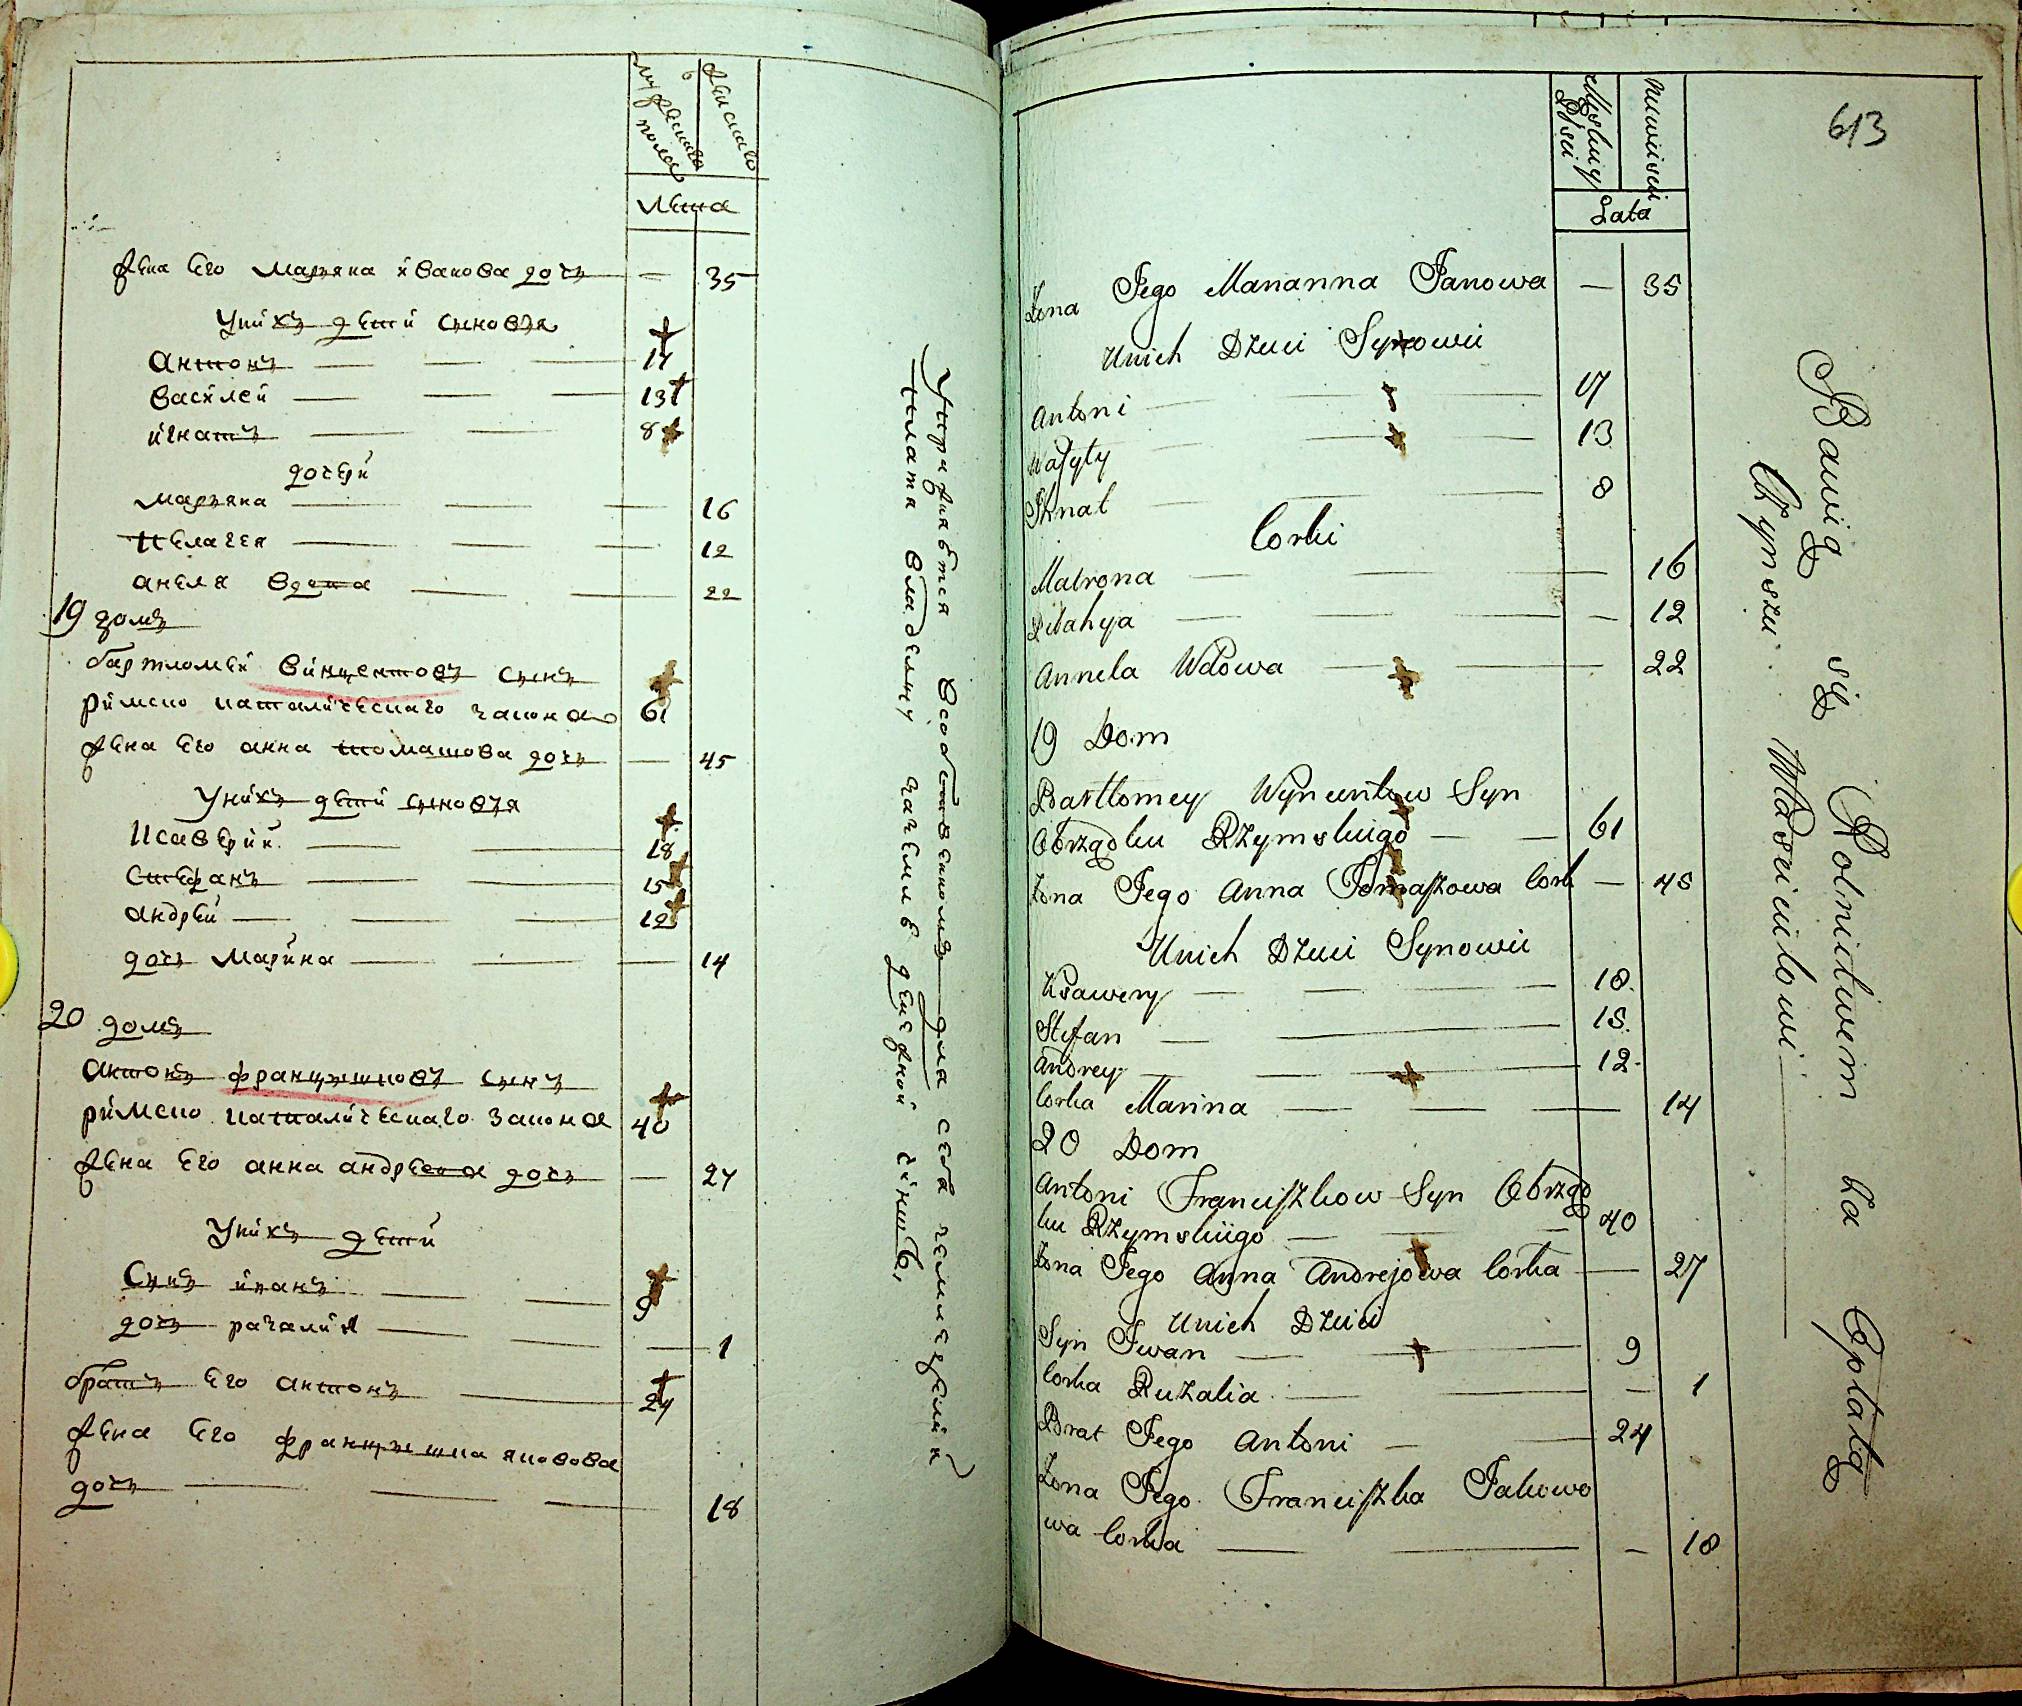 мужеска пола
женскаго
лета
жена его марьяна ивановa дочь — 35
у них дети сыновья
антонъ — 17
василей — 13
игнатъ — 8
дочери
марьяна — 16
пелагея — 12
анеля вдова — 22
19 домъ
бартломей винцентовъ сынъ
римско католическаго закона 61
жена его анна томашова дочь — 45
у нихъ дети сыновья
ксаверий — 18
стефанъ — 15
андрей — 12
дочь марина — 14
20 домъ
антонъ францишковъ сынъ
римско католическаго закона 40
жена его анна андреева дочь — 27
у нихъ дети
сынъ иванъ — 9
дочь разалия — 1
братъ его антонъ — 24
жена его францишка яковова
дочь — 18
упражняются в собственномъ для себя земледелии
платя владелцу
613
Męskiey Płci
Niewieściey
Lata
Żona Jego Marianna Janowa — 35
U nich Dzieci Synowii
Antoni — 17
Wasyly — 13
Ihnat — 8
Corki
Matrona — 16
Pelahya — 12
Annela Wdowa — 22
19 Dom
Bartłomey Wyncentow Syn
Obrządku Rzymskiego — 61
Żona Jego Anna Tomaszowa Cork — 45
U nich Dzieci Synowii
Ksawery — 18.
Stefan — 15.
Andrey — 12.
Corka Marina — 14
20 Dom
Antoni Franciszkow Syn Obrzą
ku Rzymskiigo — 40
Żona Jego Anna Andrejowa Corka — 27
U nich Dzieci
Syn Iwan — 9
Corka Ruzalia — 1
Brat Jego Antoni — 24
Żona Jego Franciszka Jakowo
wa Corka — 18
Bawią się Rolnictwem za Opłatą
Czynszu Właścicielowi